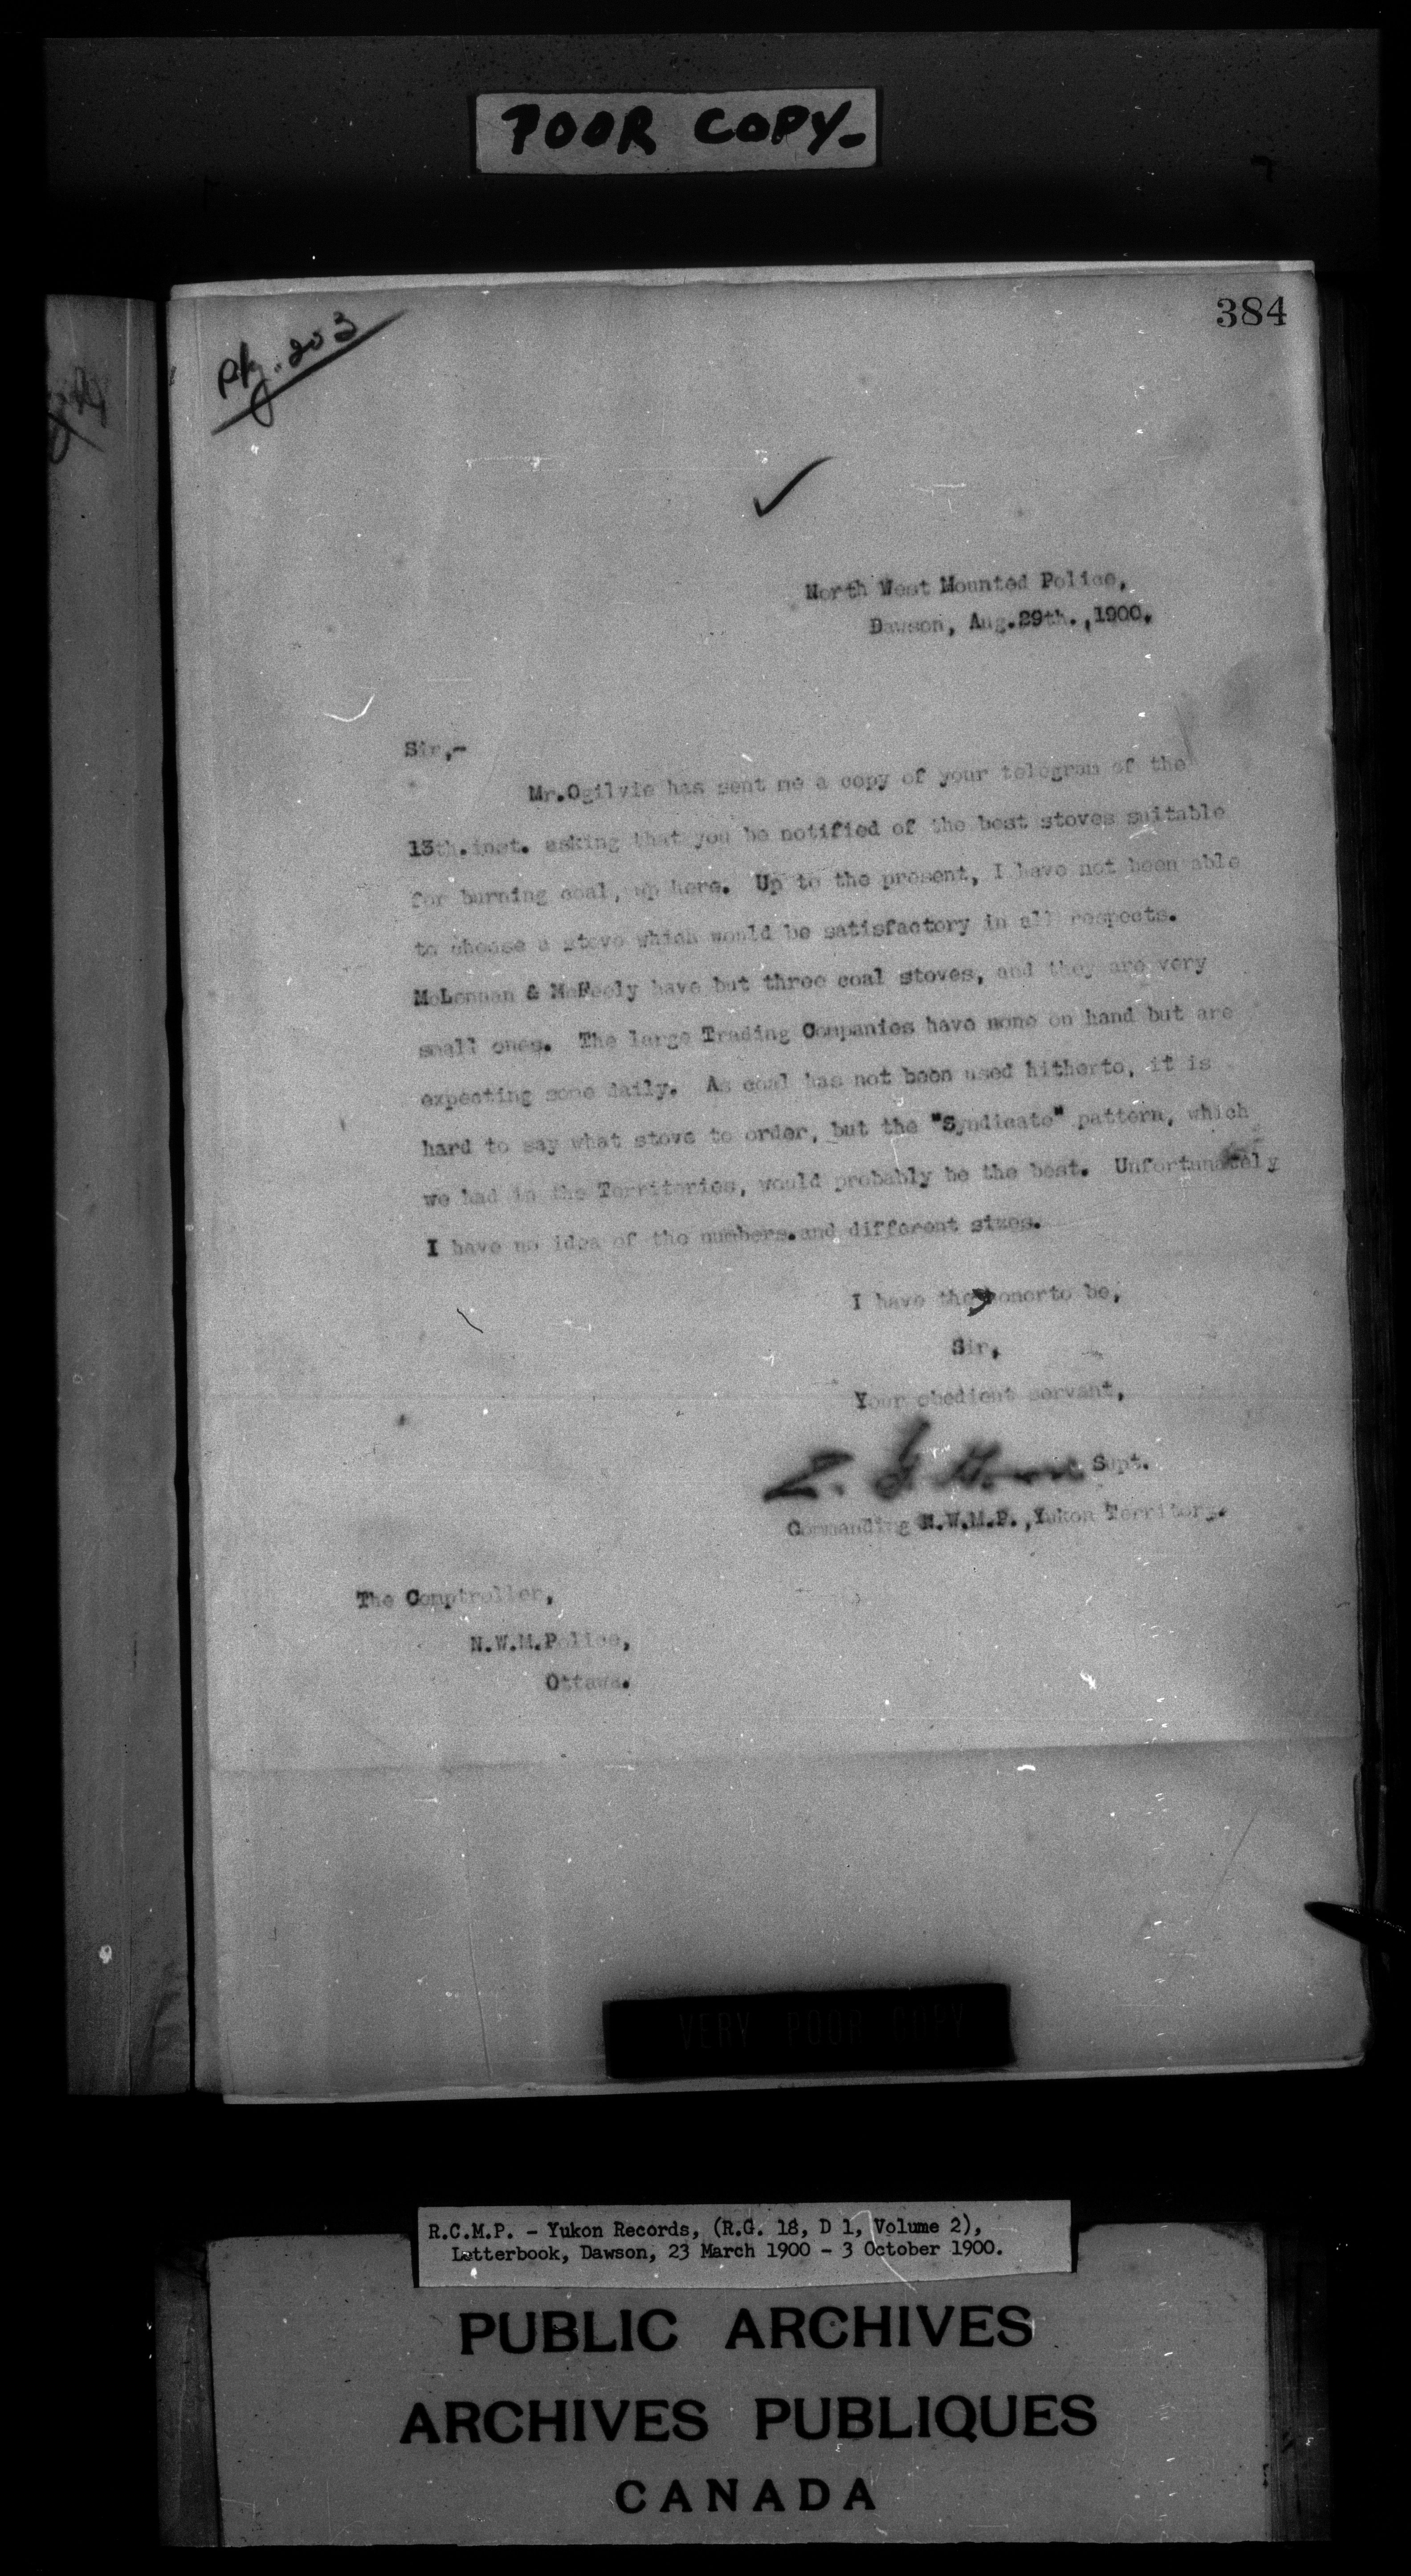 POOR COPY-
384
Pkg. 203
North West Mounted Police,
Dawson, Aug.29th.,1900.
Sir,-
Mr.Ogilvie has sent me a copy of your telegram of the
13th.inst. asking that you be notified of the best stoves suitable
for burning coal, up here. Up to the present, I have not been able
to choose a stove which would be satisfactory in all respects.
McLennan & McFeely have but three coal stoves, and they are very
small ones. The large Trading Companies have none on hand but are
expecting some daily. As coal has not been used hitherto, it is
hard to say what stove to order, but the "Syndicate" pattern, which
we had in the Territories, would probably be the best. Unfortunately
I have no idea of the numbers.and different sizes.
I have the honorto be,
Sir,
Your obedient servant,
Z. Supt.
Commanding N.W.M.P.,Yukon Territory.
The Comptroller,
N.W.M.Police,
Ottawa.
VERY POOR COPY
R.C.M.P. - Yukon Records, (R.G. 18, D 1, Volume 2),
Letterbook, Dawson, 23 March 1900 - 3 October 1900.
PUBLIC ARCHIVES
ARCHIVES PUBLIQUES
CANADA